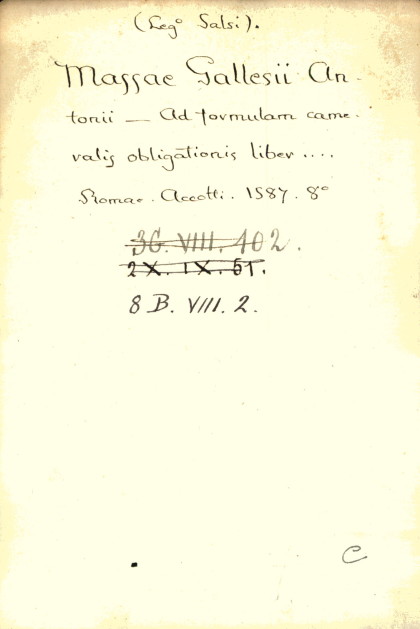 (Leg° Salsi).
Massae Gallesii An-
tonii — Ad formulam came-
ralis obligationis liber ....
Romae. Accolti. 1587. 8°
3G. VIII. 402.
2X. IX. 51.
8 B. VIII. 2.
C